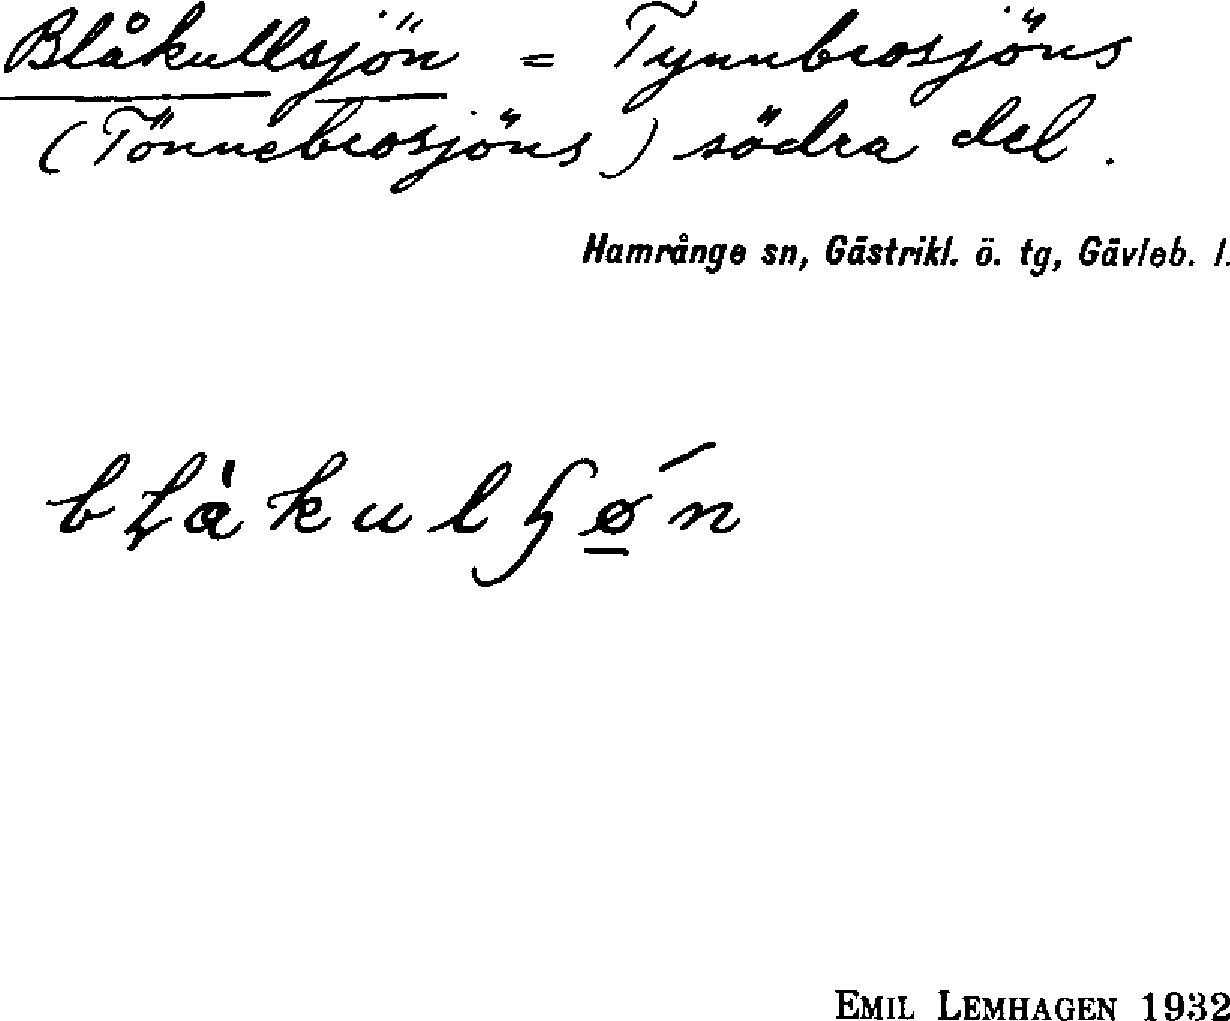 Blåkullsjön = Tynnbrosjöns
(Tönnebrosjöns) södra del.
Hamrånge sn, Gästrikl. ö. tg, Gävleb. l.
EMIL LEMHAGEN 1932